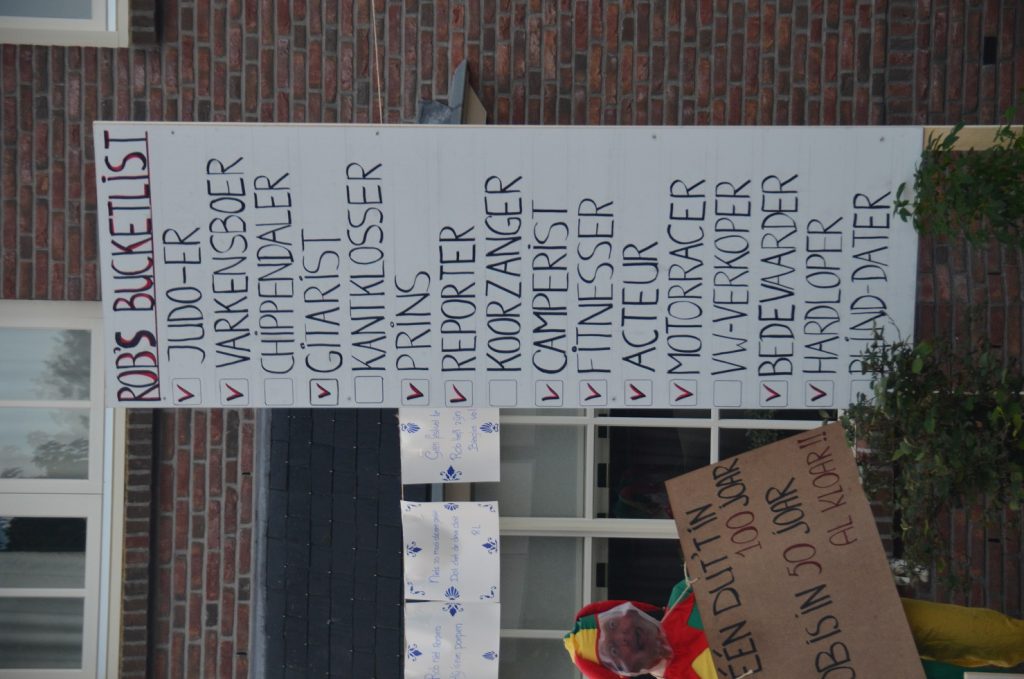 ROB'S BUCKETLIST
V JUDO-ER
V VARKENSBOER
CHIPPENDALER
V GITARIST
KANTKLOSSER
V PRINS
V REPORTER
KOORZANGER
V CAMPERIST
V FITNESSER
V ACTEUR
V MOTORRACER
VW-VERKOPER
V BEDEVAARDER
V HARDLOPER
BLIND-DATER
ÉÉN DUT 'T IN
100 JOAR
OB IS IN 50 JOAR
AL KLOAR!!!
Rob hét zijn
Niets zo